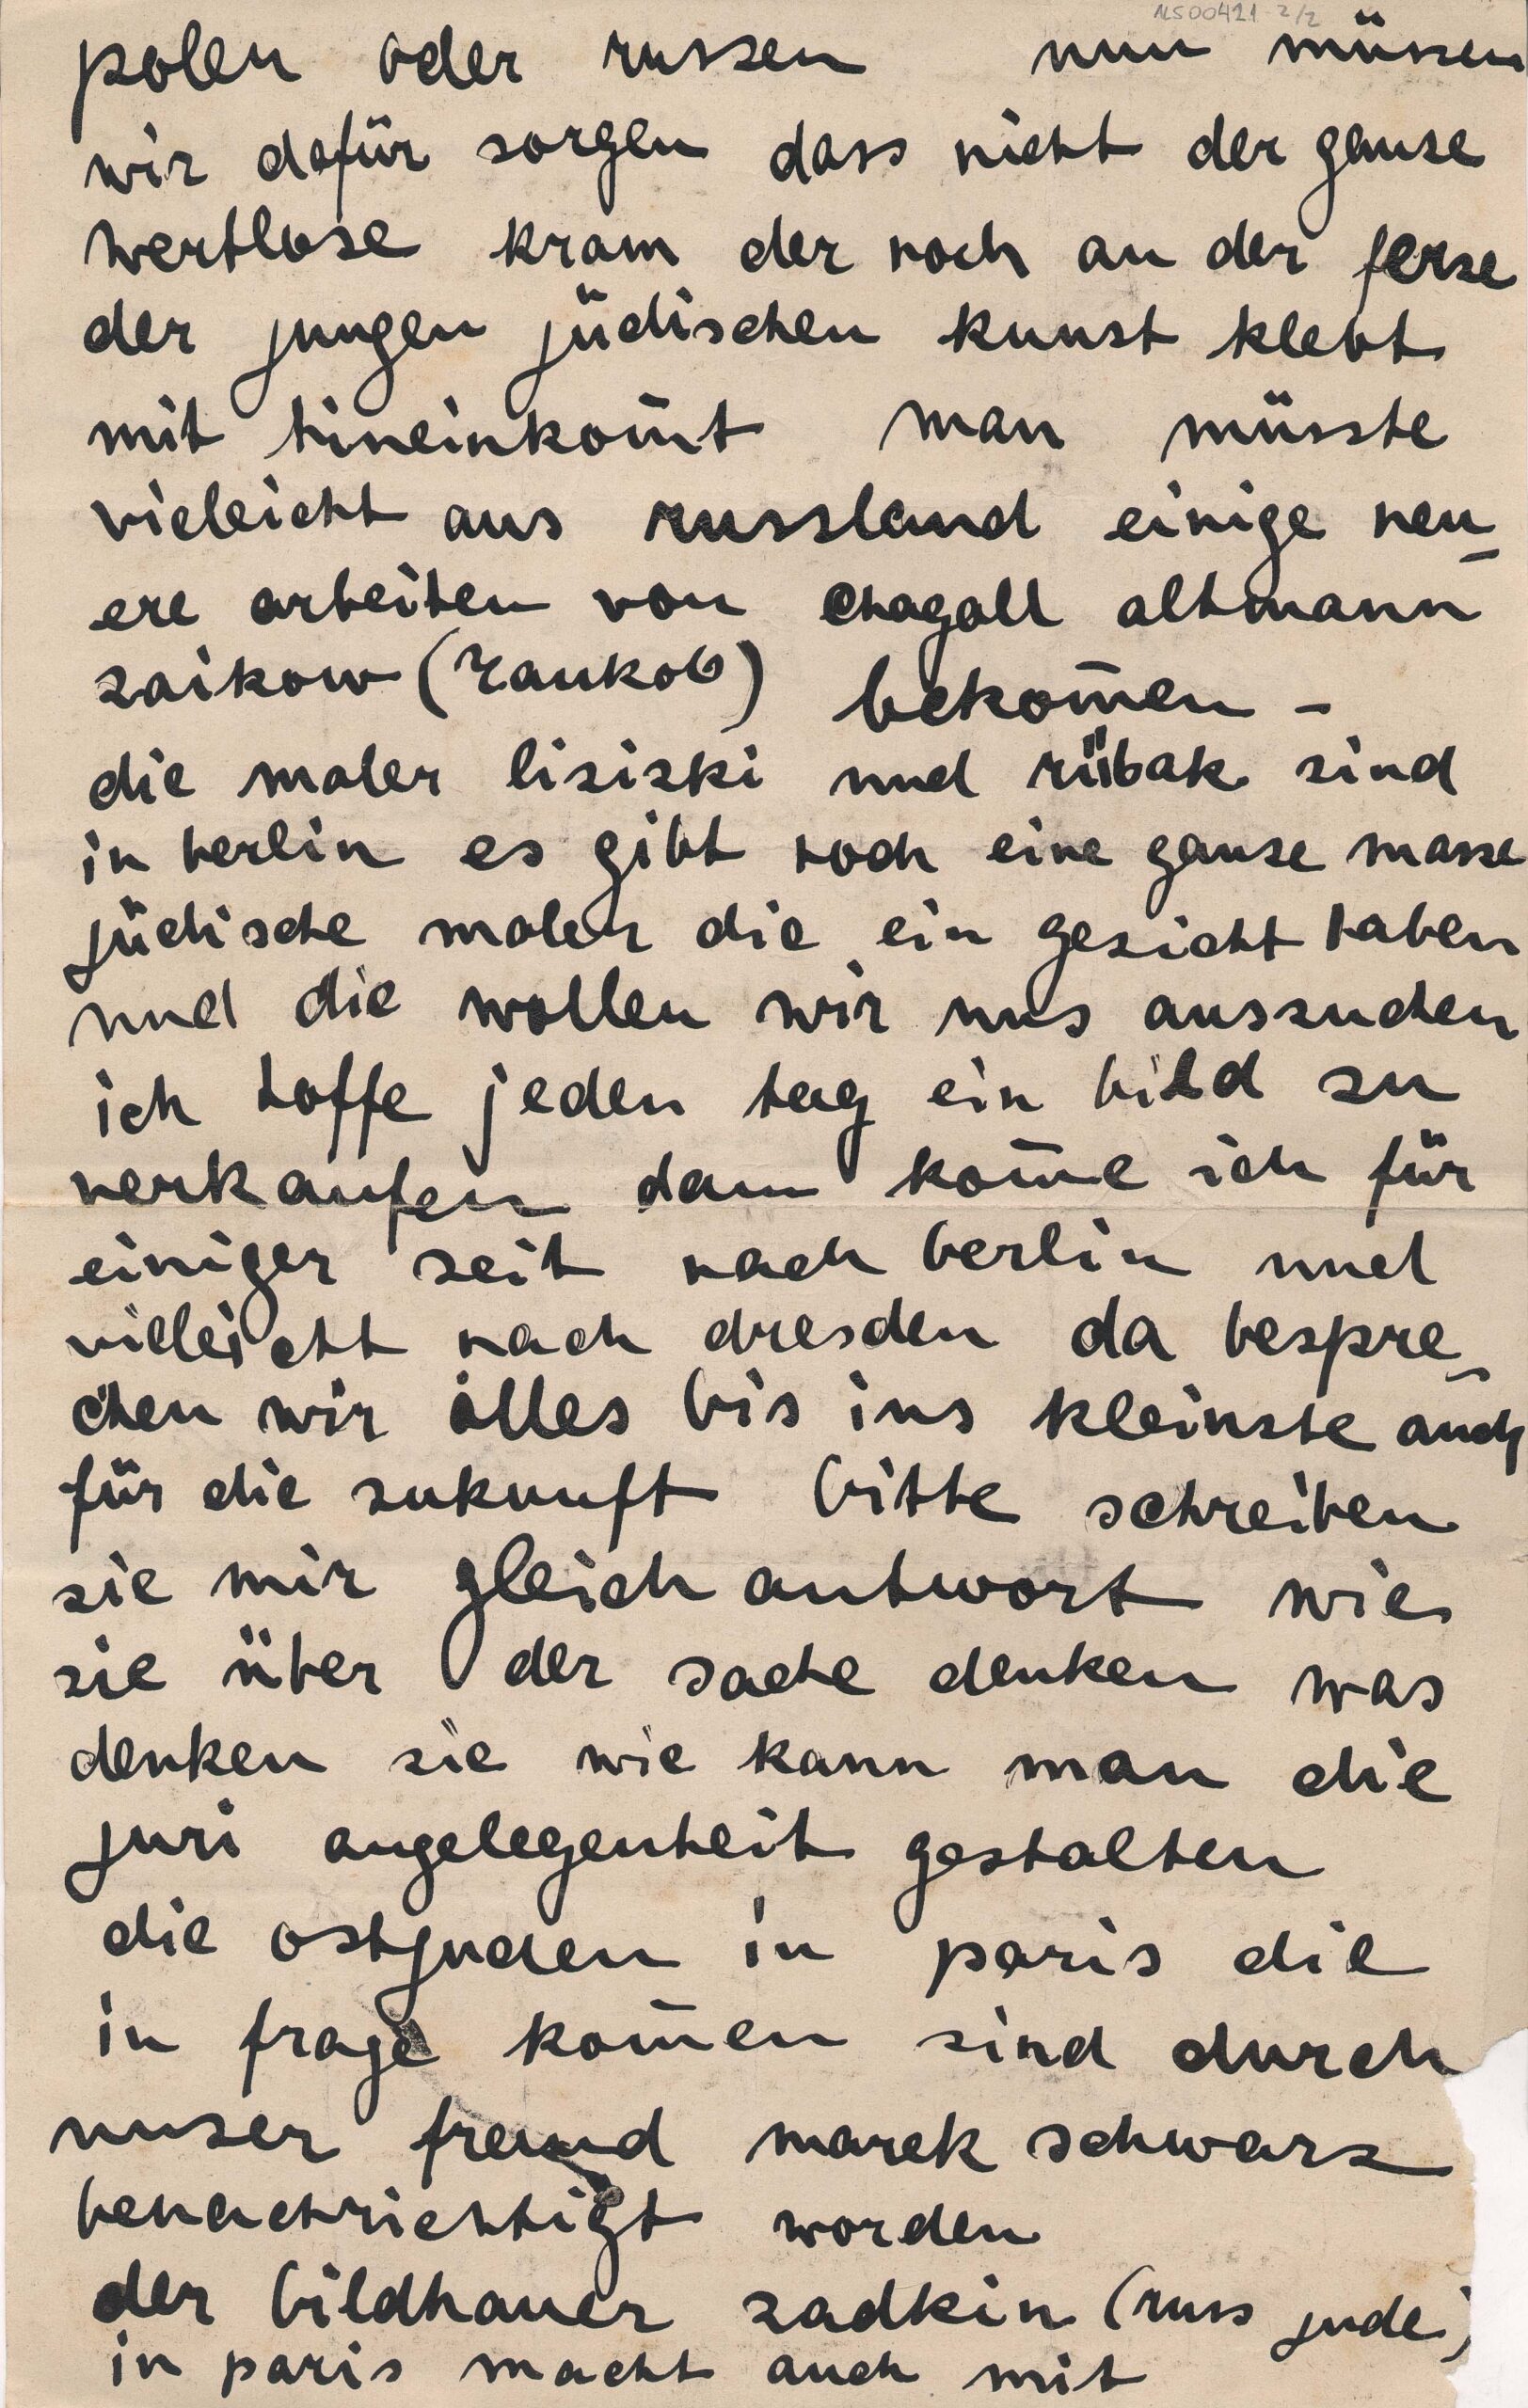 MS00421 2/2
polen oder russen nun müssen
wir dafür sorgen dass nicht der ganze
wertlose kram der noch an der ferse
der jungen jüdischen kunst klebt
mit hineinkom̄t man müsste
vieleicht aus russland einige neu-
ere arbeiten von chagall altmann
zaikow ( ) bekom̄en –
die maler lisizki und rübak sind
in berlin es gibt noch eine ganze masse
jüdische maler die ein gesicht haben
und die wollen wir uns aussuchen
ich hoffe jeden tag ein bild zu
verkaufen dann kom̄e ich für
einiger zeit nach berlin und
villeicht nach dresden da bespre-
chen wir alles bis ins kleinste auch
für die zukunft bitte schreiben
sie mir gleich antwort wie
sie über der sache denken was
denken sie wie kann man die
juri angelegenheit gestalten
die ostjuden in paris die
in frage kom̄en sind durch
unser freund marek schwarz
benachrichtigt worden
der bildhauer zadkin (russ jude)
in paris macht auch mit